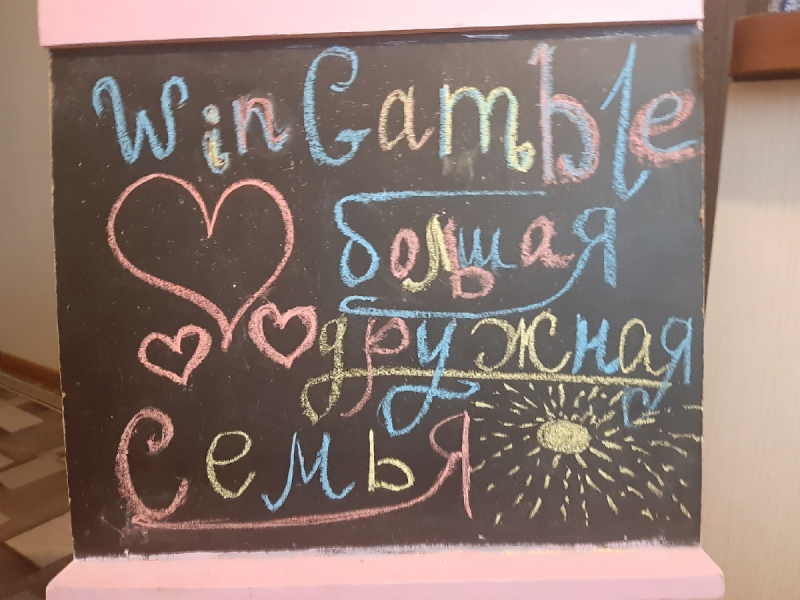 WinGamble
большая
дружная
Семья